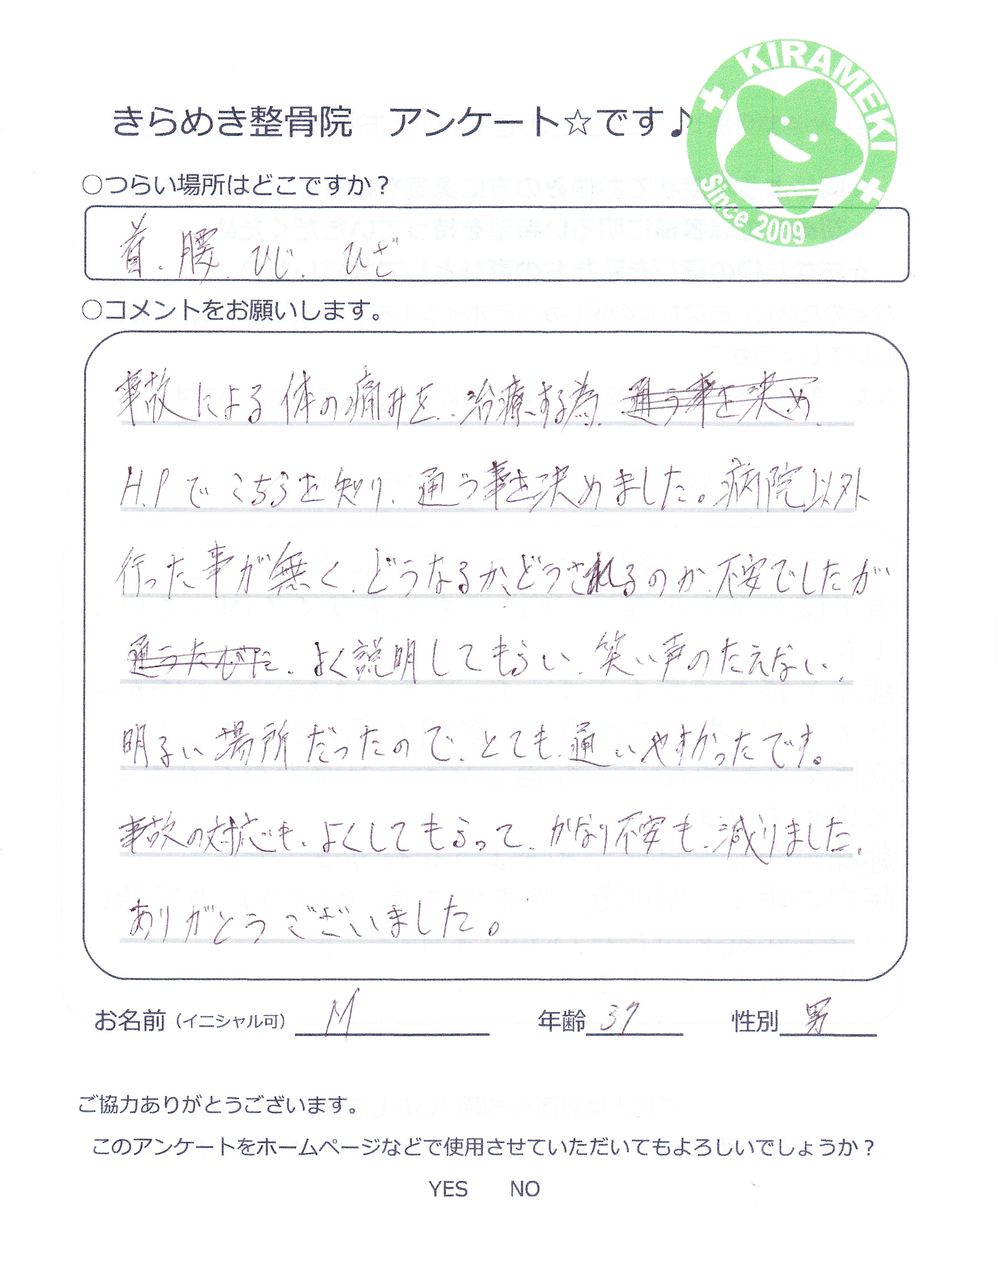 KIRAMEKI
Since 2009
きらめき整骨院 アンケート☆です♪
○つらい場所はどこですか？
首、腰、ひじ、ひざ
○コメントをお願いします。
事故による体の痛みを、治療する為、通う事を決め、
H.Pでこちらを知り、通う事を決めました。病院以外
行った事が無く、どうなるか、どうされるのか、不安でしたが
通うたびに、よく説明してもらい、笑い声のたえない、
明るい場所だったので、とても、通いやすかったです。
事故の対応も、よくしてもらって、かなり不安も、減りました。
ありがとうございました。
お名前（イニシャル可） M 年齢 37 性別 男
ご協力ありがとうございます。
このアンケートをホームページなどで使用させていただいてもよろしいでしょうか？
YES NO